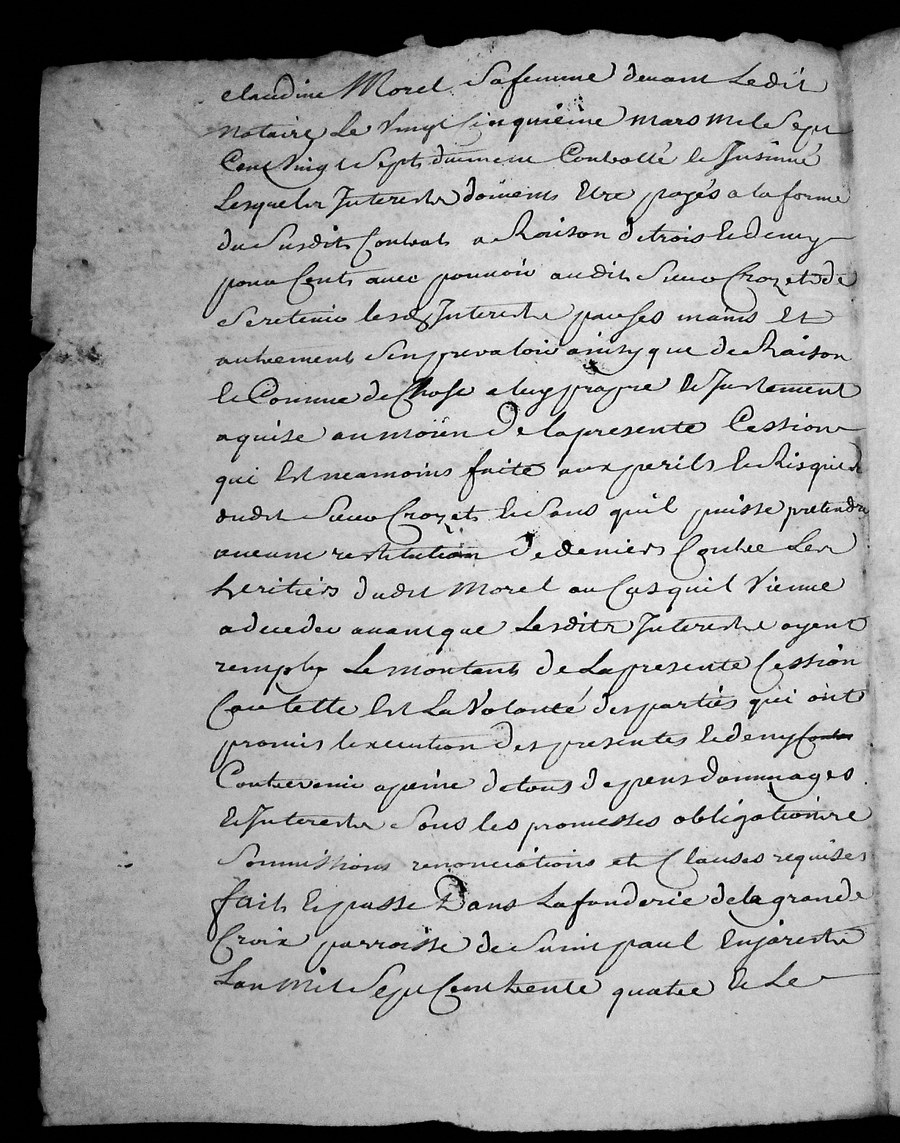 claudine Morel sa femme devant Ledit
notaire Le Vingt Cinquieme mars mil Sept
Cent Vingt Sept duement Controllé et Insinué
Lesquels Interests doivent Etre payés a la forme
du Susdit Contrat a Raison de trois et demy
pour Cent avec pouvoir audit Sieur Crozet de
Se retenir lesd Interests par ses mains Et
autrement s'en prevaloir ainsy que de Raison
et Comme de Chose a luy propre et Justement
aquise au moïen de la presente Cession
qui Est neamoins faite aux perils et Risques
dudit Sieur Crozet et Sans quil puisse pretendre
aucune restitution de deniers Contre Les
heritiers dudit Morel au Cas quil Vienne
a deceder avant que Lesdits Interests ayent
remply Le montant de La presente Cession
Car telle Est La Volonté des parties qui ont
promis l'execution des presentes et de ny
Contrevenir a peine de tous depens dommages
et Interests Sous les promesses obligations
Sommissions renonciations et Clauses requises
fait et passé Dans La fonderie de la grande
Croix parroisse de Saint paul En jarest
L'an Mil Sept Cent trente quatre et Le